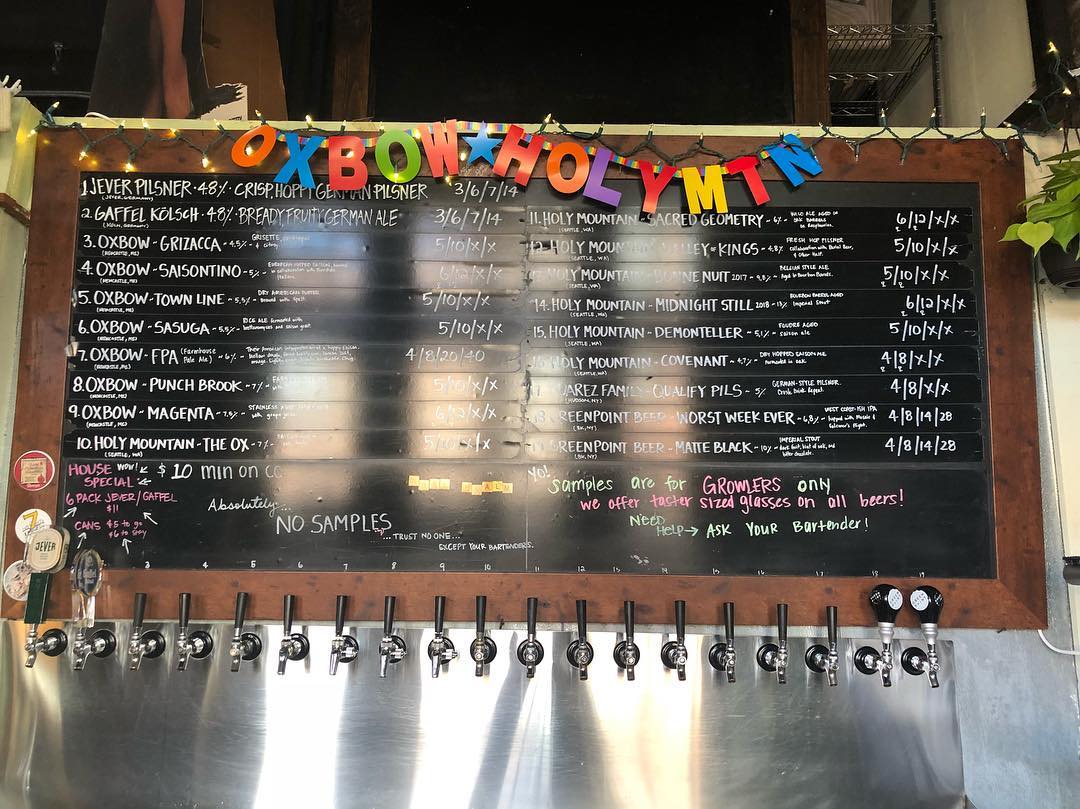 OXBOW ★ HOLY MTN
1. JEVER PILSNER · 4.8% · CRISP, HOPPY GERMAN PILSNER 3/6/7/14
(JEVER, GERMANY)
2. GAFFEL KÖLSCH · 4.8% · BREADY FRUITY GERMAN ALE 3/6/7/14
(KÖLN, GERMANY)
3. OXBOW - GRIZACCA - 4.5% - GRISETTE, 5/10/X/X
(NEWCASTLE, ME)
4. OXBOW - SAISONTINO - 5% - 6/12/X/X
(NEWCASTLE, ME)
5. OXBOW - TOWN LINE - 5.5% - DRY AMERICAN 5/10/X/X
(NEWCASTLE, ME)
6. OXBOW - SASUGA - 5.5% - RICE ALE fermented with 5/10/X/X
(NEWCASTLE, ME)
7. OXBOW - FPA (Farmhouse Pale Ale) - 6% - 4/8/20/40
(NEWCASTLE, ME)
8. OXBOW - PUNCH BROOK - 7% - 5/10/X/X
(NEWCASTLE, ME)
9. OXBOW - MAGENTA - 7.5% - STAINLESS 6/12/X/X
(NEWCASTLE, ME)
10. HOLY MOUNTAIN - THE OX - 7% - 5/10/X/X
(SEATTLE, WA)
11. HOLY MOUNTAIN - SACRED GEOMETRY - 6% - WILD ALE AGED IN OAK BARRELS 6/12/X/X
(SEATTLE, WA)
12. HOLY MOUNTAIN - VALLEY of KINGS - 4.8% FRESH HOP PILSNER 5/10/X/X
(SEATTLE, WA)
HOLY MOUNTAIN - BONNE NUIT 2017 - 9.8% - BELGIAN STYLE ALE Aged in Bourbon Barrels. 5/10/X/X
(SEATTLE, WA)
14. HOLY MOUNTAIN - MIDNIGHT STILL 2018 - 13% BOURBON BARREL AGED Imperial Stout 6/12/X/X
(SEATTLE, WA)
15. HOLY MOUNTAIN - DEMONTELLER - 5.1% - FOUDRE AGED Saison ale 5/10/X/X
(SEATTLE, WA)
HOLY MOUNTAIN - COVENANT - 4.7% - DRY HOPPED SAISON ALE fermented in oak. 4/8/X/X
(SEATTLE, WA)
SUAREZ FAMILY - QUALIFY PILS - 5% GERMAN-STYLE PILSNER. Crisp. Drink. Repeat. 4/8/X/X
(HUDSON, NY)
GREENPOINT BEER - WORST WEEK EVER - 6.8% - WEST COAST-ISH IPA hopped with Mosaic & 4/8/14/28
(BK, NY)
GREENPOINT BEER - MATTE BLACK - 10% - IMPERIAL STOUT bitter chocolate. 4/8/14/28
(BK, NY)
HOUSE WOW!
SPECIAL
6 PACK JEVER/GAFFEL
$11
CANS $5 to go
$6 to stay
$10 min on cc
Absolutely...
NO SAMPLES
... TRUST NO ONE...
EXCEPT YOUR BARTENDERS.
YO!
Samples are for GROWLERS only
we offer taster sized glasses on all beers!
NEED
Help → ASK YOUR Bartender!
3 4 5 6 7 8 9 10 11 12 13 14 15 16 17 18 19
7
JEVER